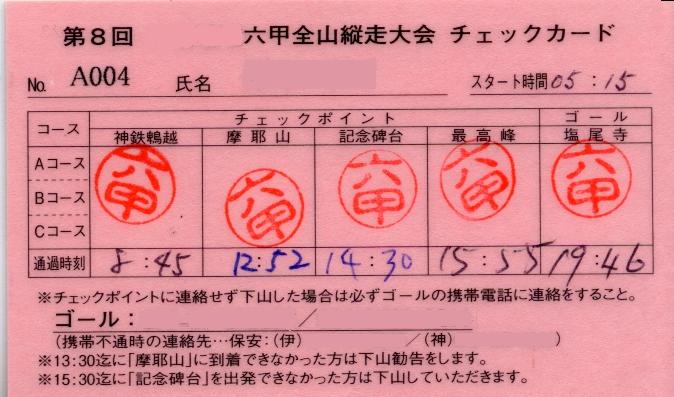 第8回 六甲全山縦走大会 チェックカード
No. A004 氏名 スタート時間 05:15
コース チェックポイント ゴール
神鉄鵯越 摩耶山 記念碑台 最高峰 塩尾寺
Aコース
Bコース
Cコース
六甲 六甲 六甲 六甲 六甲
通過時刻 8:45 12:52 14:30 15:55 19:46
※チェックポイントに連絡せず下山した場合は必ずゴールの携帯電話に連絡をすること。
ゴール: /
(携帯不通時の連絡先…保安:(伊) /(神) )
※13:30迄に「摩耶山」に到着できなかった方は下山勧告をします。
※15:30迄に「記念碑台」を出発できなかった方は下山していただきます。